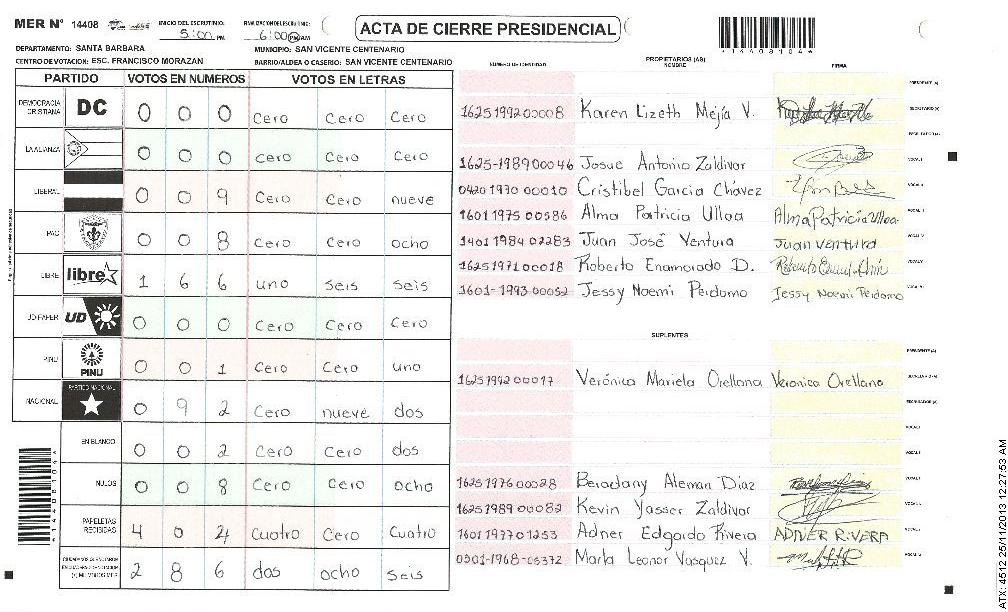 MER N° 14408
INICIO DEL ESCRUTINIO: 5:00 PM
FINALIZACION DEL ESCRUTINIO: 6:00 PM AM
ACTA DE CIERRE PRESIDENCIAL
*14408104*
DEPARTAMENTO: SANTA BARBARA
MUNICIPIO: SAN VICENTE CENTENARIO
CENTRO DE VOTACION: ESC. FRANCISCO MORAZAN
BARRIO/ALDEA O CASERIO: SAN VICENTE CENTENARIO
PARTIDO VOTOS EN NUMEROS VOTOS EN LETRAS
DEMOCRACIA CRISTIANA DC 0 0 0 Cero Cero Cero
LA ALIANZA 0 0 0 Cero Cero Cero
LIBERAL 0 0 9 Cero Cero nueve
PAC 0 0 8 Cero Cero ocho
LIBRE libre 1 6 6 uno seis seis
UD FAPER UD 0 0 0 Cero Cero Cero
PINU PINU 0 0 1 Cero Cero uno
NACIONAL PARTIDO NACIONAL 0 9 2 Cero nueve dos
EN BLANCO 0 0 2 Cero Cero dos
NULOS 0 0 8 Cero Cero ocho
PAPELETAS RECIBIDAS 4 0 4 Cuatro Cero Cuatro
2 8 6 dos ocho seis
NUMERO DE IDENTIDAD PROPIETARIOS (AS) NOMBRE FIRMA
PRESIDENTE (A)
1625199200008 Karen Lizeth Mejía V. SECRETARIO (A)
ESCRUTADOR (A)
1625-1989 00046 Josue Antonio Zaldivar VOCAL I
0420 1970 00010 Cristibel Garcia Chávez VOCAL II
1601 1975 00586 Alma Patricia Ulloa Alma Patricia Ulloa VOCAL III
1401 1984 02283 Juan José Ventura Juan Ventura VOCAL IV
1625197100018 Roberto Enamorado D. VOCAL V
1601-1993 00052 Jessy Noemi Perdomo Jessy Noemi Perdomo VOCAL VI
SUPLENTES
PRESIDENTE (A)
1625199200017 Verónica Mariela Orellana Veronica Orellana SECRETARIO (A)
ESCRUTADOR (A)
VOCAL I
VOCAL II
1625197600028 Beradany Aleman Diaz
1625 1989 00082 Kevin Yasser Zaldivar
1601197701253 Adner Edgardo Rivera ADNER RIVERA
0501-1968-05372 Marla Leonor Vasquez V.
*14408104*
ATX: 4512 25/11/2013 12:27:53 AM